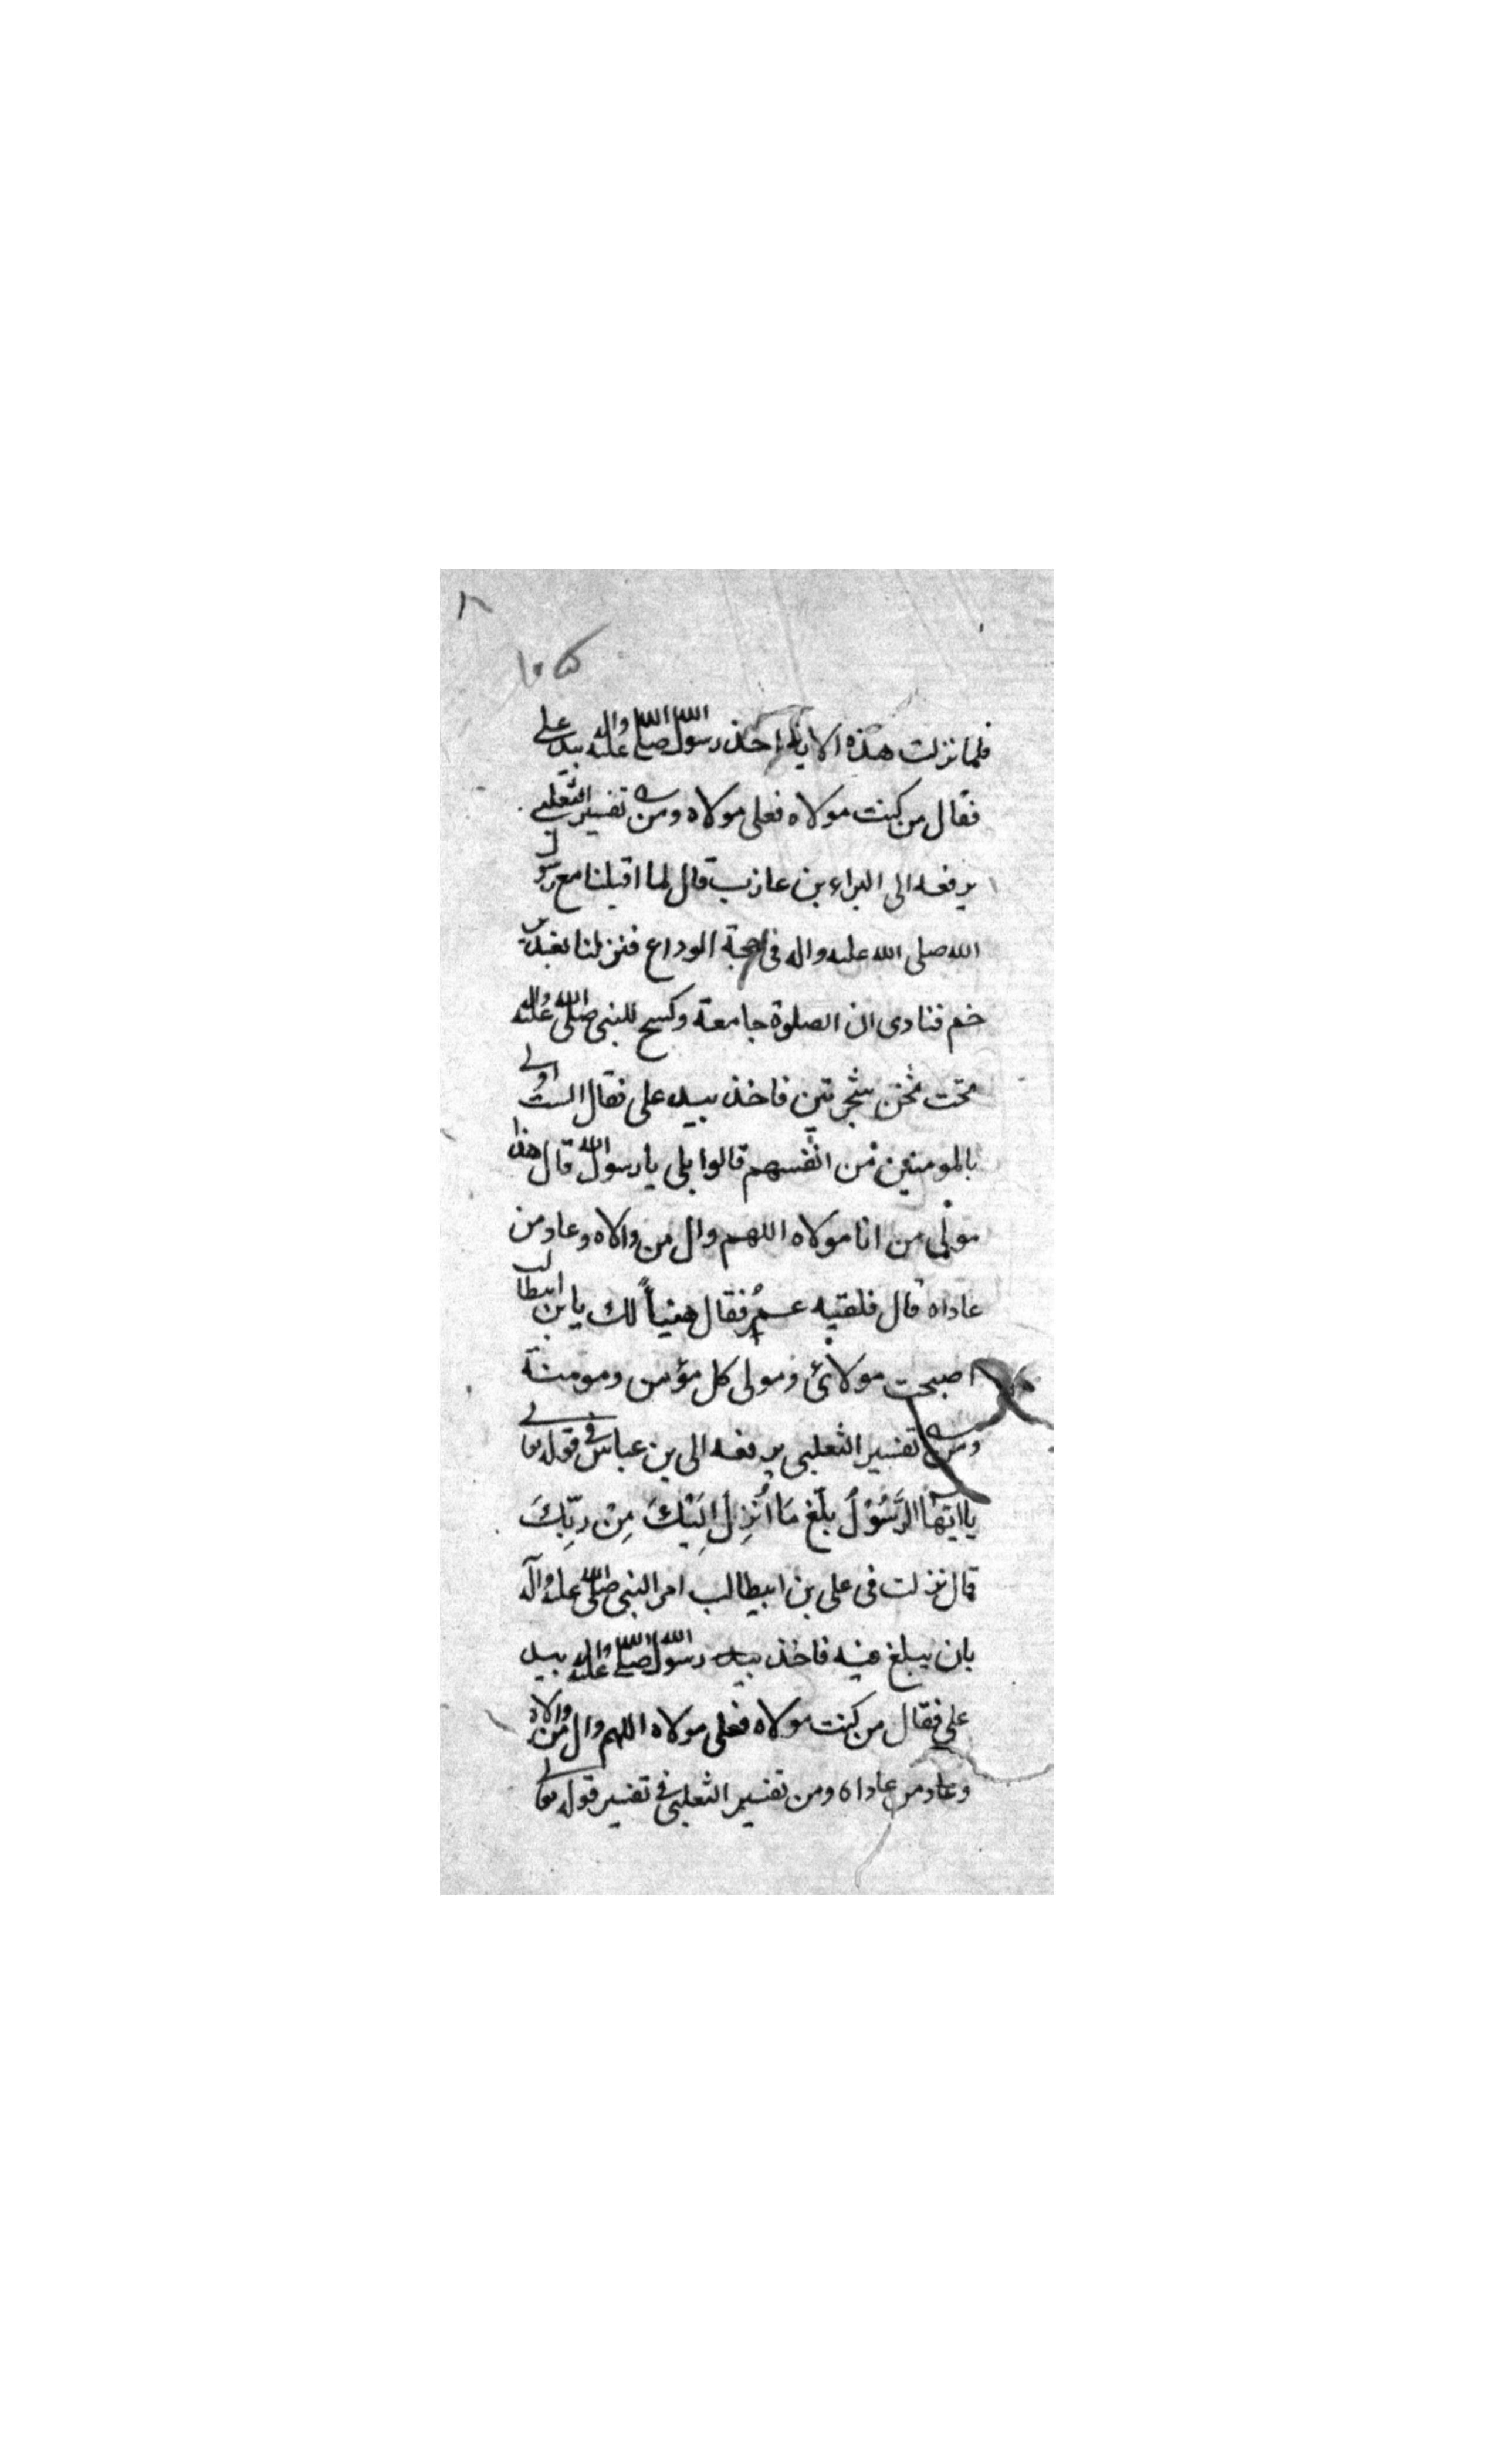 ١٠٥
فلما نزلت هذه الاية اخذ رسول الله صلى الله عليه واله بيد على
فقال من كنت مولاه فعلى مولاه ومن تفسير الثعلبى
يرفعه الى البراء بن عازب قال لما اقبلنا مع رسول
الله صلى الله عليه واله فى حجة الوداع فنزلنا بغدير
خم فنادى ان الصلوة جامعة وكسح للنبى صلى الله عليه واله
تحت شجرتين فاخذ بيد على فقال الست اولى
بالمومنين من انفسهم قالوا بلى يا رسول الله قال هذا
مولى من انا مولاه اللهم وال من والاه وعاد من
عاداه قال فلقيه عمر فقال هنياً لك يا بن ابيطالب
اصبحت مولائ ومولى كل مؤمن ومومنة
ومن تفسير الثعلبى يرفعه الى بن عباس فى قوله تعالى
يا ايها الرَّسُوْلُ بلّغ مَا اُنْزِلَ اِلَيْكَ مِنْ رَبِّكَ
قال نزلت فى على بن ابيطالب امر النبى صلى الله عليه وآله
بان يبلغ فيه فاخذ بيد رسول الله صلى الله عليه واله بيد
على فقال من كنت مولاه فعلى مولاه اللهم وال من والاه
وعاد من عاداه ومن تفسير الثعلبى فى تفسير قوله تعالى